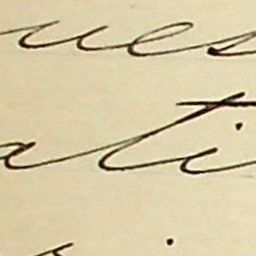 ues
ati